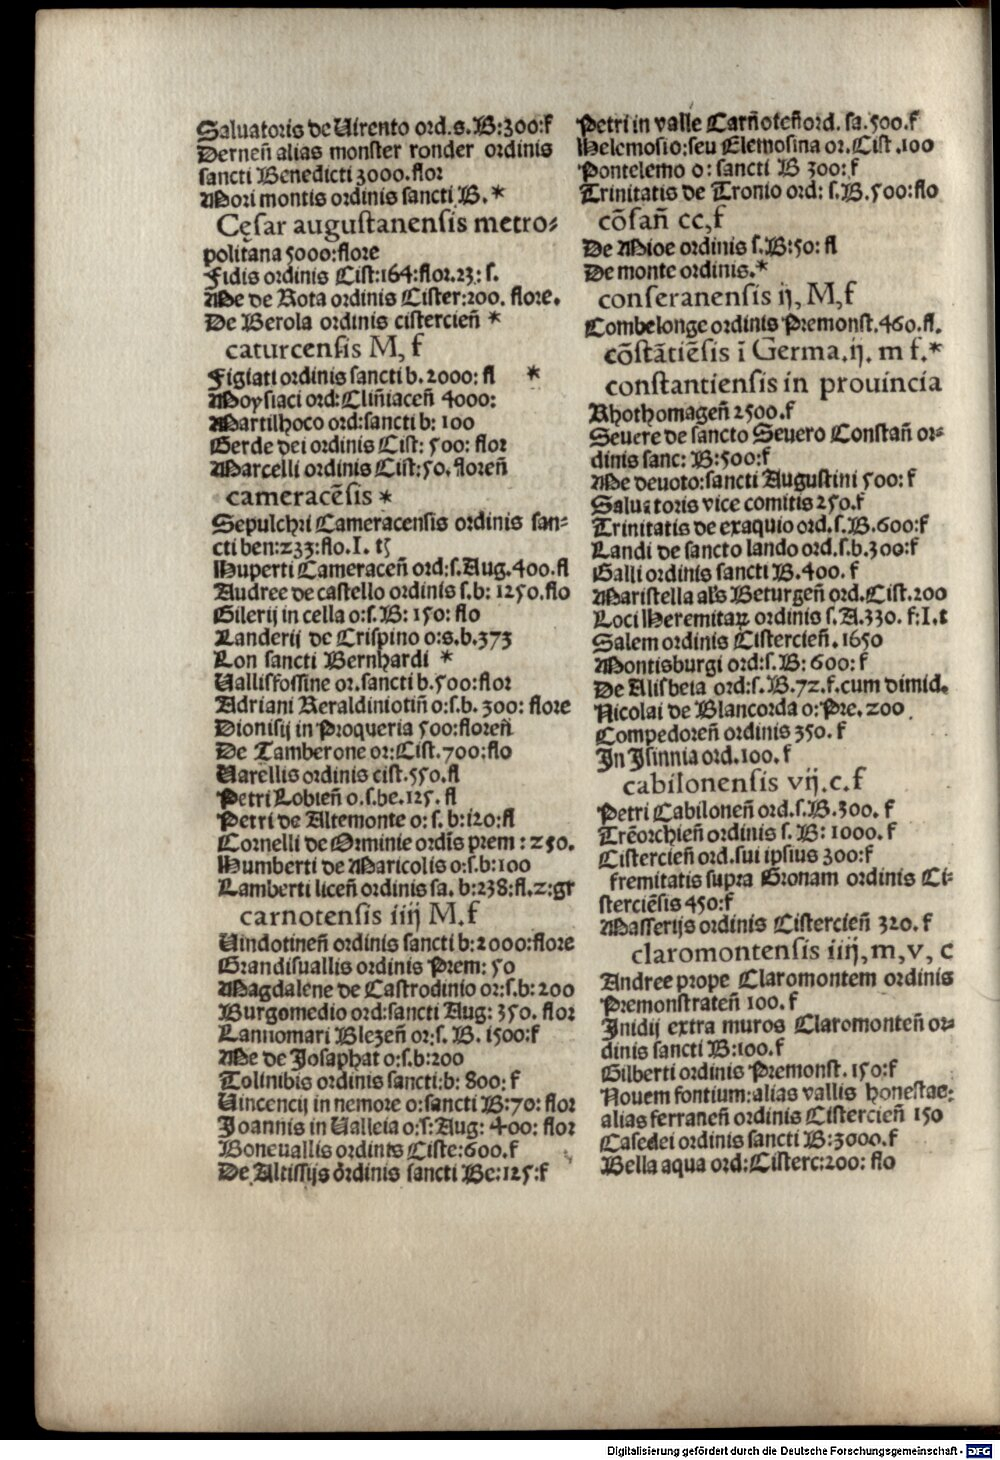 Saluatoris de Uirento ord.s.B:300:f
Derneñ alias monster ronder ordinis
sancti Benedicti 3000.flor
Mori montis ordinis sancti B.*
Cęsar augustanensis metro⸗
politana 5000:flore
Fidis ordinis Cist:164:flor.23: s.
Me de Rota ordinis Cister:200. flore.
De Berola ordinis cistercieñ *
caturcensis M, f
Figiati ordinis sancti b. 2000: fl *
Moysiaci ord:Cliñiaceñ 4000:
Martilhoco ord:sancti b: 100
Gerde dei ordinis Cist: 500: flor
Marcelli ordinis Cist:50.floreñ
cameracẽsis *
Sepulchri Cameracensis ordinis san⸗
cti ben:233:flo.I. tʒ
Huperti Cameraceñ ord:s.Aug.400.fl
Audree de castello ordinis s.b: 1250.flo
Gilerij in cella o:s.B: 150: flo
Landerij de Crispino o:s.b.373
Lon sancti Bernhardi *
Uallisfossine or.sancti b.500:flor
Adriani Geraldiniotiñ o:s.b. 300: flore
Dionisij in Proqueria 500:floreñ
De Tamberone or:Cist.700:flo
Uarellis ordinis cist.550.fl
Petri Lobieñ o.s.be.125. fl
Petri de Altemonte o: s. b:120:fl
Cornelli de Orminie ordĩs prem : 250.
Humberti de Maricolis o:s.b:100
Lamberti liceñ ordinis sa. b:238:fl.2:gr
carnotensis iiij M.f
Uindotineñ ordinis sancti b:2000:flore
Grandisuallis ordinis Prem: 50
Magdalene de Castrodinio or:s.b: 200
Burgomedio ord:sancti Aug: 350. flor
Lannomari Blezeñ or:s. B. 1500:f
Me de Josaphat o:s.b:200
Tolinibis ordinis sancti:b: 800: f
Uincencij in nemore o:sancti B:70: flor
Joannis in Ualleia o:s:Aug: 400: flor
Boneuallis ordinis Ciste:600.f
De Altissijs ordinis sancti Be:125:f
Petri in valle Carñoteñ ord. sa.500.f
Helemosio:seu Elemosina or.Cist.100
Pontelemo o: sancti B 300: f
Trinitatis de Tronio ord: s.B.500:flo
cõsañ cc,f
De Mioe ordinis s.B:50: fl
De monte ordinis.*
conseranensis ij, M,f
Combelonge ordinis Premonst.460.fl.
cõstãtiẽsis ĩ Germa.ij. m f.*
constantiensis in prouincia
Rhothomageñ 2500.f
Seuere de sancto Seuero Constañ or⸗
dinis sanc: B:500:f
Me deuoto:sancti Augustini 500: f
Saluatoris vice comitis 250.f
Trinitatis de exaquio ord.s.B.600:f
Landi de sancto lando ord.s.b.300:f
Galli ordinis sancti B.400. f
Maristella als Beturgeñ ord.Cist.200
Loci Heremitaꝝ ordinis s.A.330. f:I.t
Salem ordinis Cistercieñ. 1650
Montisburgi ord:s. B: 600: f
De Alisbeia ord:s.B.72.f.cum dimid.
Nicolai de Blancorda o:Pre. 200
Compedoreñ ordinis 350. f
In Isinnia ord.100. f
cabilonensis vij.c.f
Petri Cabiloneñ ord.s.B.300. f
Trẽorchieñ ordinis s. B: 1000. f
Cistercieñ ord.sui ipsius 300:f
fremitatis supra Gronam ordinis Ci⸗
sterciẽsis 450:f
Masserijs ordinis Cistercieñ 320. f
claromontensis iiij,m,v, c
Andree prope Claromontem ordinis
Premonstrateñ 100. f
Inidij extra muros Claromonteñ or⸗
dinis sancti B:100.f
Gilberti ordinis Premonst. 150:f
Nouem fontium:alias vallis honestae:
alias ferraneñ ordinis Cistercieñ 150
Casedei ordinis sancti B:3000.f
Bella aqua ord:Cisterc:200: flo
Digitalisierung gefördert durch die Deutsche Forschungsgemeinschaft - DFG